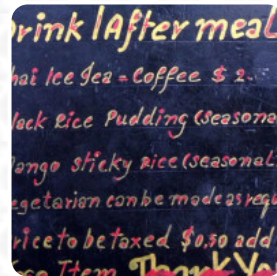 Drink | After meal
hai Ice Tea = Coffee $ 2.
lack Rice Pudding (seasona
ango sticky Rice (seasonal
egetarian can be made as requ
rice to be taxed $0.50 add
Item Thank Yo